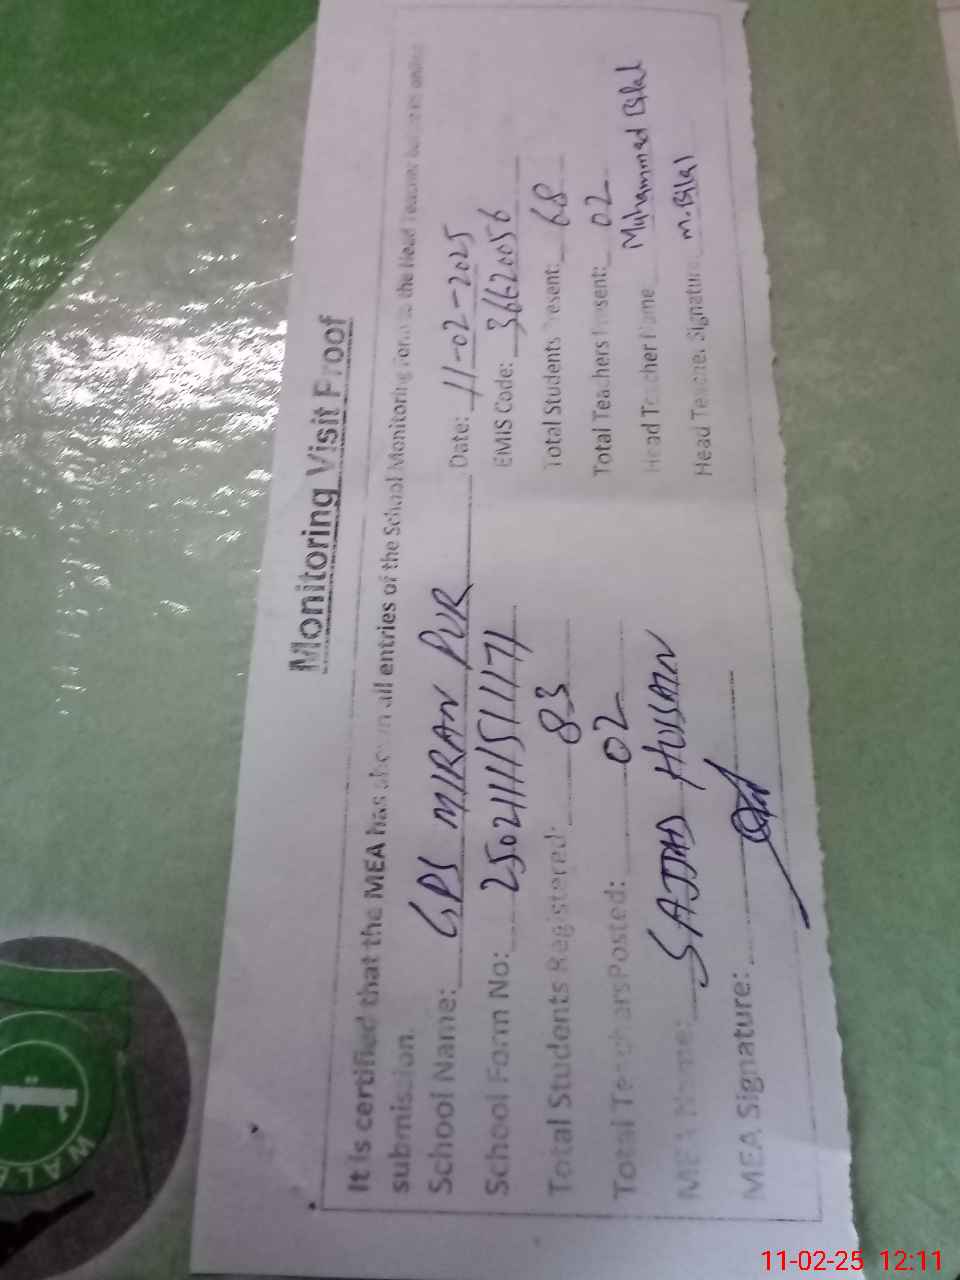 Monitoring Visit Proof
It is certified that the MEA has shown all entries of the School Monitoring Form to the Head Teacher before its online
submission.
School Name: GPS MIRAN PUR Date: 11-02-2025
School Form No: 2502111151171 EMIS Code: 36620056
Total Students Registered: 83 Total Students Present: 68
Total Teachers Posted: 02 Total Teachers Present: 02
MEA Name: SAJJAD HUSSAIN Head Teacher Name Muhammad Bilal
MEA Signature: Head Teacher Signature M.Bilal
11-02-25 12:11